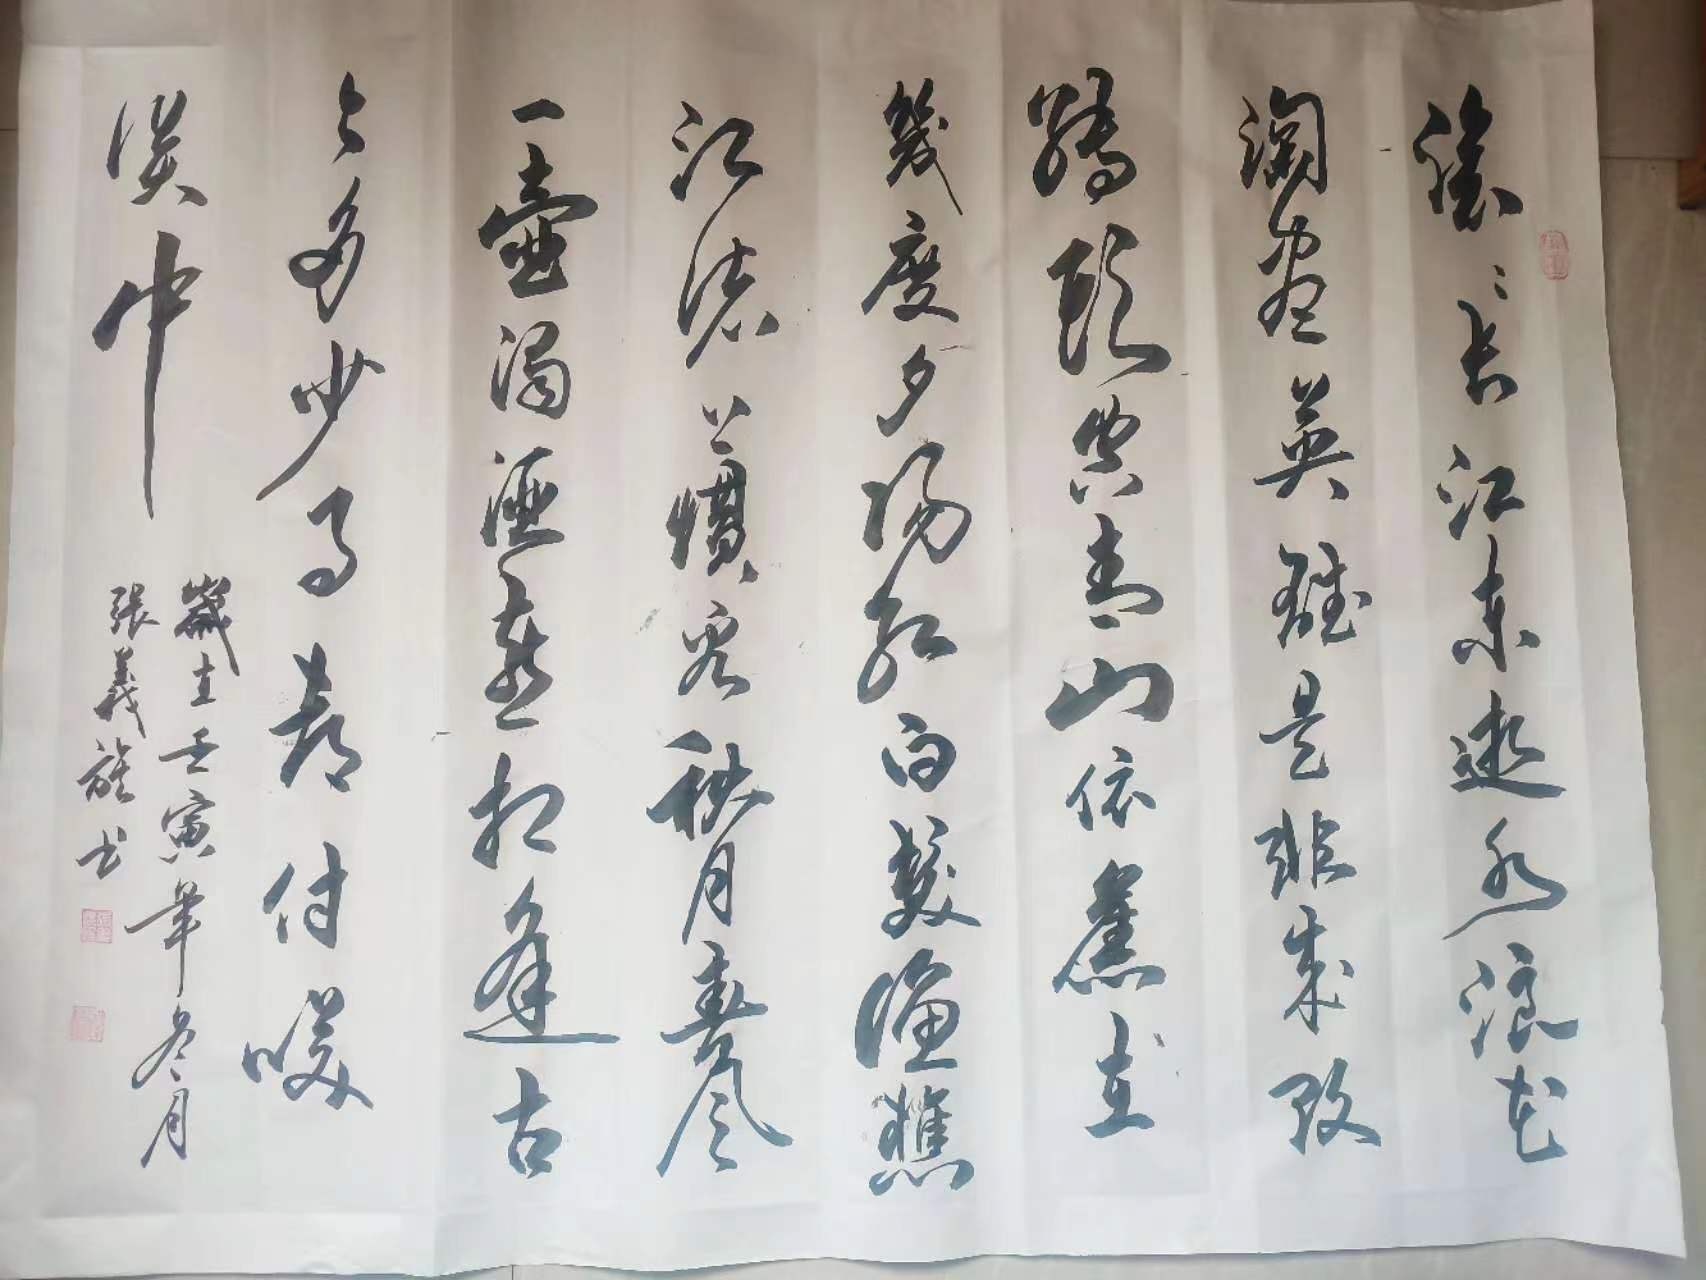 滚〻长江東逝水浪花
淘尽英雄是非成敗
轉頭空青山依舊在
幾度夕陽红白髮漁樵
江渚上慣看秋月春风
一壶濁酒喜相逢古
今多少事都付笑
谈中
歲在壬寅年冬月
張義旋书